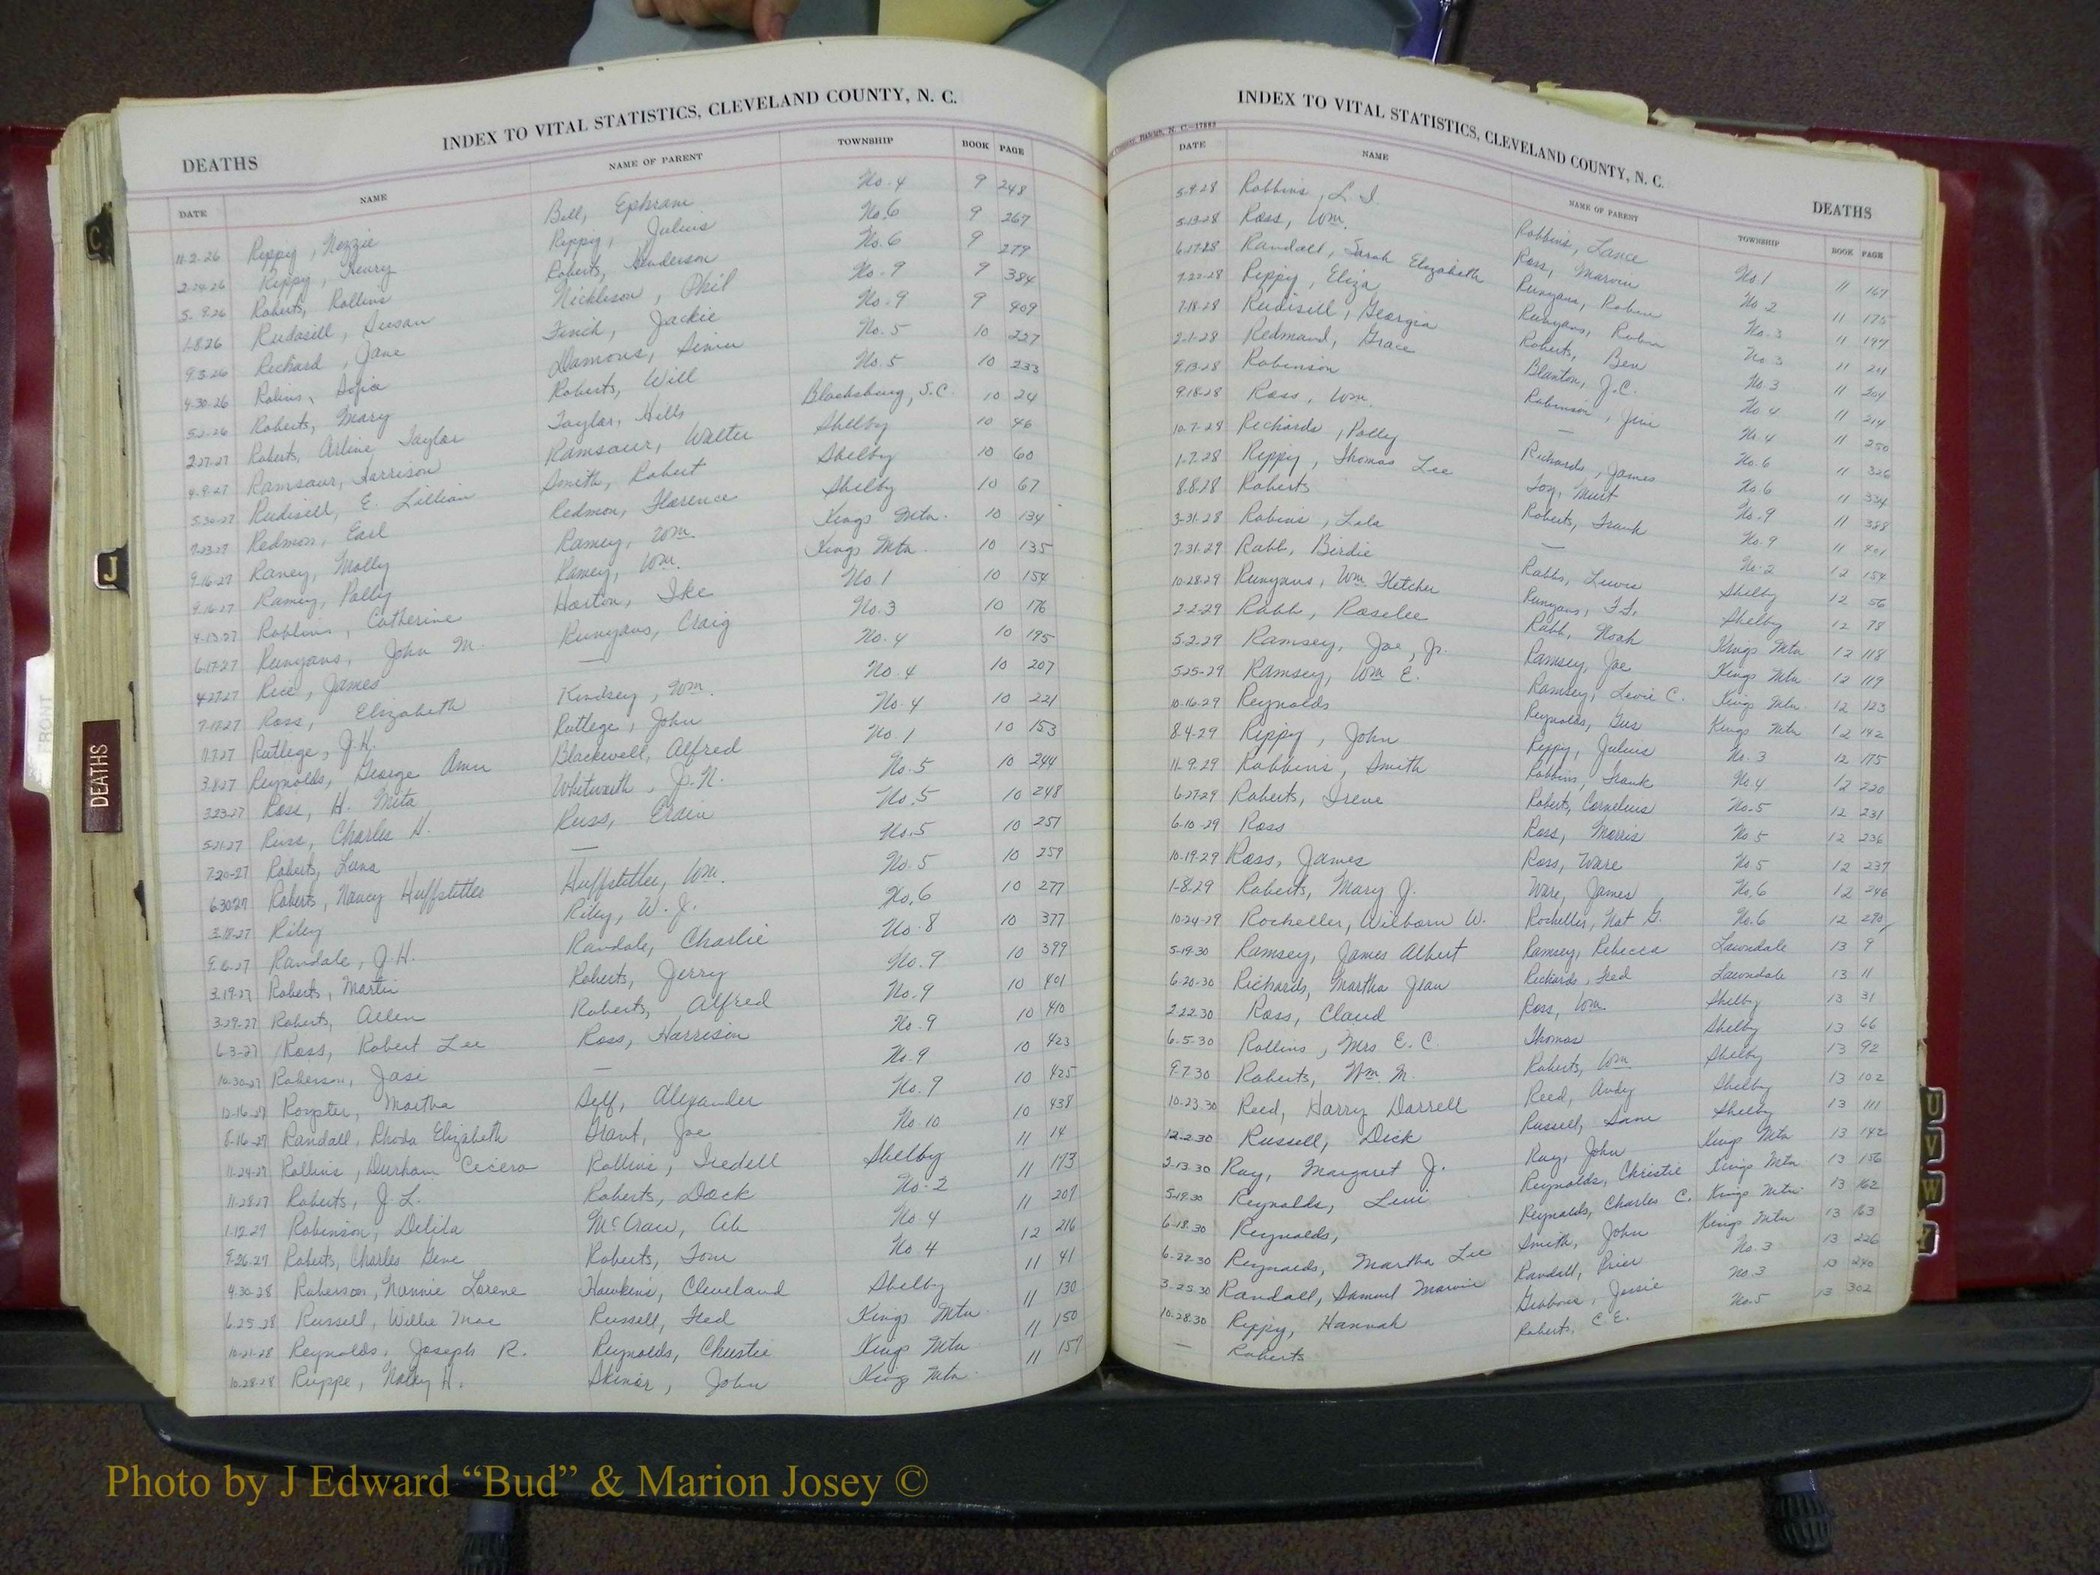 INDEX TO VITAL STATISTICS, CLEVELAND COUNTY, N. C.
DEATHS
DATE NAME NAME OF PARENT TOWNSHIP BOOK PAGE
11-2-26 Rippy, Nezzie Bell, Ephram No. 4 9 248
2-24-26 Rippy, Henry Rippy, Julius No. 6 9 267
5-9-26 Roberts, Rollins Roberts, Henderson No. 6 9 279
1-8-26 Rudasill, Susan Nickleson, Phil No. 9 9 384
9-3-26 Richard, Jane Finch, Jackie No. 9 9 409
4-30-26 Robins, Damons, No. 5 10 227
5-2-26 Roberts, Mary Roberts, Will No. 5 10 233
2-27-27 Roberts, Arline Taylor Taylor, Hills Blacksburg, S.C. 10 24
4-9-27 Ramsaur, Harrison Ramsaur, Walter Shelby 10 46
5-30-27 Rudisill, E. Lillian Smith, Robert Shelby 10 60
7-23-27 Redmon, Earl Redmon, Florence Shelby 10 67
9-16-27 Raney, Molly Ramey, Wm. Kings Mtn. 10 134
9-16-27 Ramey, Polly Ramey, Wm. Kings Mtn. 10 135
4-13-27 Robbins, Catherine Horton, Ike No. 1 10 154
6-17-27 Runyans, John M. Runyans, Craig No. 3 10 176
4-27-27 Rice, James — No. 4 10 195
7-17-27 Ross, Elizabeth Kindsey, Wm. No. 4 10 207
11-7-27 Rutlege, J.H. Rutlege, John No. 4 10 221
3-8-27 Reynolds, George Ann Blackwell, Alfred No. 1 10 153
3-23-27 Ross, H. Meta Whitworth, J.N. No. 5 10 244
5-21-27 Russ, Charles H. Russ, Crain No. 5 10 248
7-20-27 Roberts, Luna — No. 5 10 251
6-30-27 Roberts, Nancy Huffstitler Huffstitler, Wm. No. 5 10 259
3-18-27 Riley Riley, W. J. No. 6 10 277
9-6-27 Randale, J.H. Randale, Charlie No. 8 10 377
3-19-27 Roberts, Martin Roberts, Jerry No. 9 10 399
3-29-27 Roberts, Allen Roberts, Alfred No. 9 10 401
6-3-27 Ross, Robert Lee Ross, Harrison No. 9 10 410
10-30-27 Roberson, Jase — No. 9 10 423
12-16-27 Royster, Martha Self, Alexander No. 9 10 425
8-16-27 Randall, Rhoda Elizabeth Grant, Joe No 10 10 438
11-24-27 Rollins, Durham Cicero Rollins, Iredell Shelby 11 14
11-28-27 Roberts, J. L. Roberts, Dock No. 2 11 173
1-12-27 Robinson, Delila McCraw, Ab No 4 11 207
9-26-27 Roberts, Charles Gene Roberts, Tom No. 4 12 216
4-30-28 Roberson, Nannie Lorene Hawkins, Cleveland Shelby 11 41
6-25-28 Russell, Willie Mae Russell, Fred Kings Mtn. 11 130
10-21-28 Reynolds, Joseph R. Reynolds, Christie Kings Mtn. 11 150
10-28-28 Ruppe, H. Skinor, John King Mtn. 11 157
INDEX TO VITAL STATISTICS, CLEVELAND COUNTY, N. C.
DEATHS
DATE NAME NAME OF PARENT TOWNSHIP BOOK PAGE
5-9-28 Robbins, L. I. Robbins, Lance No. 1 11 167
5-13-28 Ross, Wm. Ross, Marvin No. 2 11 175
6-17-28 Randall, Sarah Elizabeth Runyans, No. 3 11 197
7-22-28 Rippy, Eliza Runyans, No. 3 11 211
7-18-28 Rudisill, Georgia Roberts, Ben No. 3 11 204
2-1-28 Redmand, Grace Blanton, J.C. No 4 11 214
9-13-28 Robinson Robinson, Jim No. 4 11 250
9-18-28 Ross, Wm. — No. 6 11 326
10-7-28 Richards, Polly Richards, James No 6 11 334
1-7-28 Rippy, Thomas Lee No. 9 11 388
8-8-28 Roberts Roberts, Frank No. 9 11 401
3-31-28 Robins, Lula — No. 2 12 154
7-31-29 Rabb, Birdie Rabbs, Lewis Shelby 12 56
10-28-29 Runyans, Wm. Fletcher Runyans, Shelby 12 78
2-2-29 Rabb, Roselee Rabb, Noah Kings Mtn 12 118
5-2-29 Ramsey, Joe, Jr. Ramsey, Joe Kings Mtn. 12 119
5-25-29 Ramsey, Wm E. Ramsey, Levie C. Kings Mtn. 12 123
10-16-29 Reynolds Reynolds, Gus Kings Mtn 12 142
8-4-29 Rippy, John Rippy, Julius No. 3 12 175
11-9-29 Robbins, Smith Robbins, Frank No. 4 12 220
6-27-29 Roberts, Irene Roberts, Cornelius No. 5 12 231
6-10-29 Ross Ross, Morris No 5 12 236
10-19-29 Ross, James Ross, Ware No 5 12 237
1-8-29 Roberts, Mary J. Ware, James No. 6 12 246
10-24-29 Rocheller, Wilborn W. Rocheller, Nat G. No. 6 12 290
5-19-30 Ramsey, James Albert Ramsey, Rebecca Lawndale 13 9
6-20-30 Richards, Martha Jean Richards, Fred Lawndale 13 11
2-22-30 Ross, Claud Ross, Wm Shelby 13 31
6-5-30 Rollins, Mrs E. C. Thomas Shelby 13 66
9-7-30 Roberts, Wm. M. Roberts, Wm Shelby 13 92
10-23-30 Reed, Harry Darrell Reed, Andy Shelby 13 102
12-2-30 Russell, Dick Russell, Sam Shelby 13 111
2-13-30 Ray, Margaret J. Ray, John Kings Mtn 13 142
5-19-30 Reynolds, Levi Reynolds, Christie Kings Mtn 13 156
6-18-30 Reynolds, Reynolds, Charles C. Kings Mtn. 13 162
6-22-30 Reynolds, Martha Lee Smith, John Kings Mtn 13 163
3-25-30 Randall, Samuel Marvin Randall, Price No. 3 13 226
10-28-30 Rippy, Hannah Gibbons, Jessie No. 3 13 240
— Roberts Roberts, C. E. No. 5 13 302
C
J
DEATHS
U
V
W
Photo by J Edward “Bud” & Marion Josey ©